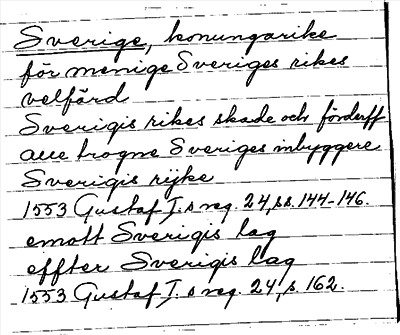 Sverige, konungarike
för menige Sveriges rikes
velfärd
Sverigis rikes skade och förderff
alle trogne Sveriges inbyggere
Sverigis rijke
1553 Gustaf I.s reg. 24, ss. 144-146.
emott Sverigis lag
effter Sverigis lag
1553 Gustaf I.s reg. 24, s. 162.